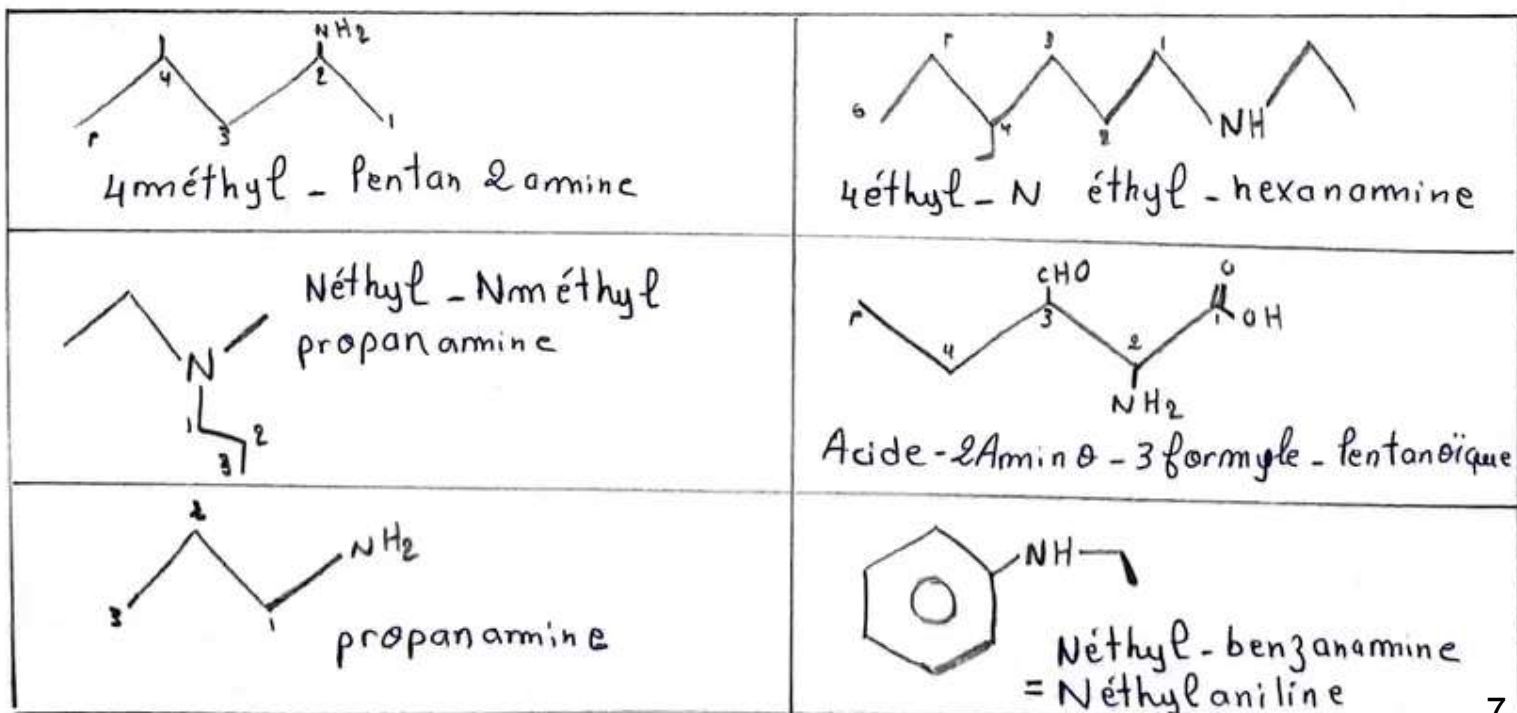 NH2
4 2
5 3 1
4méthyl - Pentan 2 amine
5 3 1
6 4 2 NH
4éthyl - N éthyl - hexanamine
Néthyl - Nméthyl
propanamine
N
1 2
3
CHO O
5 3 1 OH
4 2
NH2
Acide - 2Amino - 3 formyle - Pentanoïque
2 NH2
3 1
propanamine
NH
Néthyl - benzanamine
= Néthylaniline
7